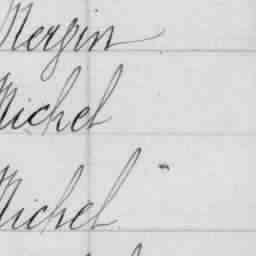 Mergin
Michel
Michel "